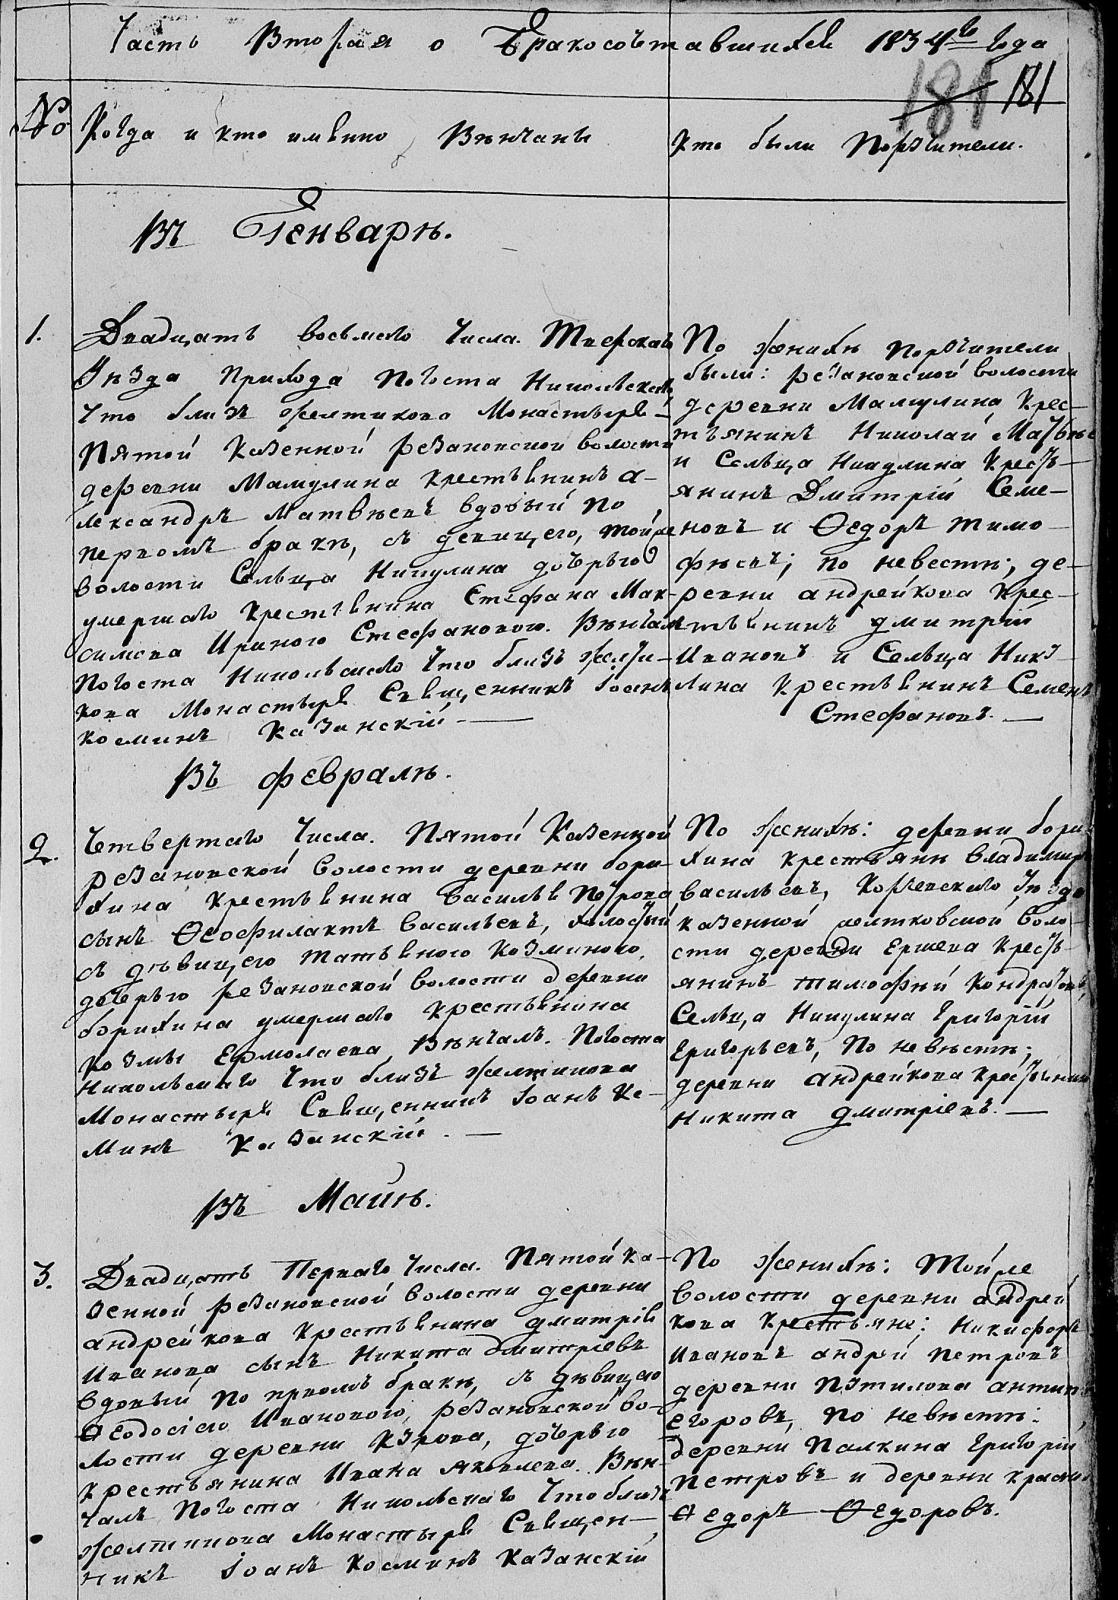 Часть Вторая о Бракосочетавшихся 1834го года
181 181
№ Когда и кто имянно Вѣнчаны
Кто были Поручители.
Въ Генварѣ.
1. Двадцать восьмаго Числа. Тверскаго
Уѣзда Прихода Погоста Никольскаго
Что близь Желтикова Монастыря
Пятой Казенной Рязановской волости
деревни Мамулина крестьянинъ А-
лександръ Матвѣевъ вдовый по
первомъ бракѣ, съ девицею, той же
волости Сельца Никулина дочерью
умершаго Крестьянина Стефана Мак-
симова Ириною Стефановою. Вѣнчалъ
Погоста Никольскаго Что близь Желти-
кова Монастыря Священникъ Іоаннъ
Косминъ Казанскій
По женихѣ Поручители
были: Рязановской волости
деревни Мамулина Крес-
тьянинъ Николай Матвѣевъ
и Сельца Никулина Кресть-
янинъ Дмитрій Семе-
новъ и Ѳедоръ Тимо-
фѣевъ; по невестѣ; де-
ревни Андрейкова Крес-
тьянинъ Дмитрій
Ивановъ и Сельца Нику-
лина Крестьянинъ Семенъ
Стефановъ.
Въ Февралѣ.
2. Четвертаго Числа. Пятой Казенной
Рязановской Волости деревни Бори-
хина Крестьянина Василья Петрова
сынъ Ѳеофилактъ Васильевъ, холостый
съ дѣвицею Татьяною Козминою,
дочерью Рязановской волости деревни
Борихина умершаго Крестьянина
Козмы Ермолаева. Вѣнчалъ. Погоста
Никольскаго Что близь Желтикова
Монастыря Священникъ Іоанъ Ко-
минъ Казанскій.
По женихѣ: деревни Бори-
хина крестьянин Владимиръ
Васильевъ, Корчевскаго Уѣзда
казенной волости
деревни Ершева Кресть-
янинъ Тимофѣй Кондратьевъ,
Сельца Никулина Григорій
Григорьевъ, По невѣстѣ;
деревни Андрейкова Крестьянинъ
Никита Дмитріевъ.
Въ Маиѣ.
3. Двадцать Перваго Числа. Пятой Ка-
зенной Рязановской волости деревни
Андрейкова Крестьянина Дмитрія
Иванова сынъ Никита Дмитріевъ
вдовый по первомъ бракѣ, съ дѣвицею
Ѳеодосіею Ивановою, Рязановской во-
лости деревни Курова, дочерью
Крестьянина Ивана Яковлева. Вѣн-
чалъ Погоста Никольскаго Что близь
Желтикова Монастыря Священ-
никъ Іоанъ Косминъ Казанскій
По женихѣ: Той же
Волости деревни Андрей-
кова Крестьяне: Никифоръ
Ивановъ Андрѣй Петровъ
деревни Путилова Антипъ
Егоровъ, По невѣстѣ:
деревни Палкина Григорій
Петровъ и деревни
Ѳедоръ Ѳедоровъ.